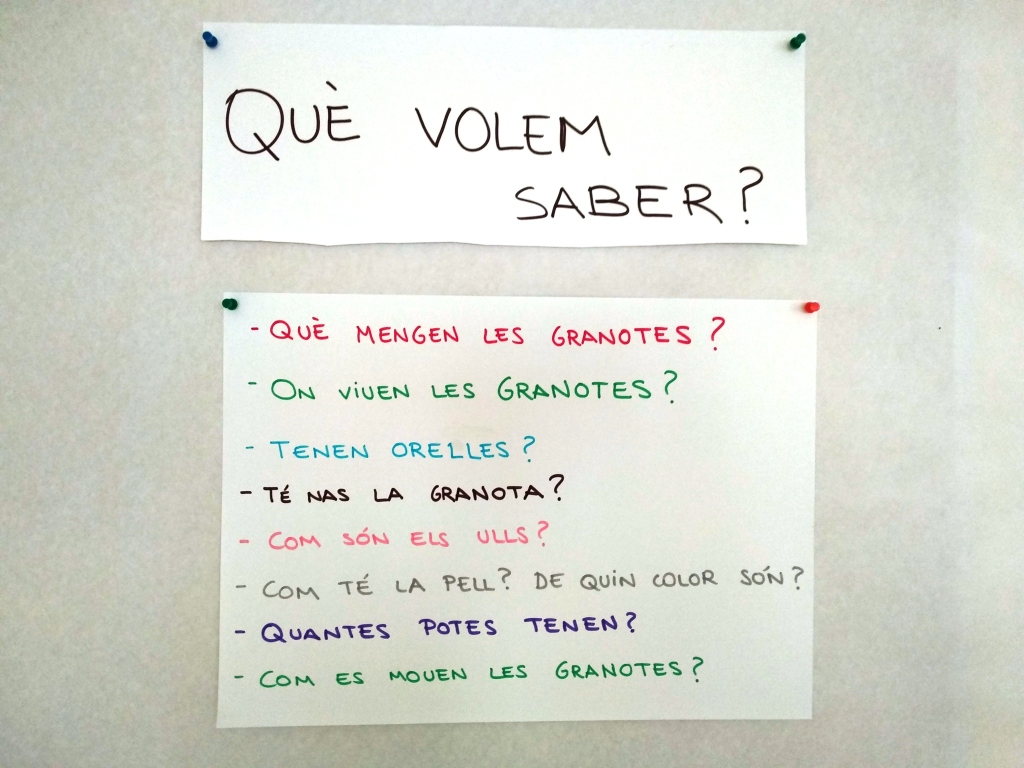 QUÈ VOLEM
SABER?
- QUÈ MENGEN LES GRANOTES?
- ON VIUEN LES GRANOTES?
- TENEN ORELLES?
- TÉ NAS LA GRANOTA?
- COM SÓN ELS ULLS?
- COM TÉ LA PELL? DE QUIN COLOR SÓN?
- QUANTES POTES TENEN?
- COM ES MOUEN LES GRANOTES?